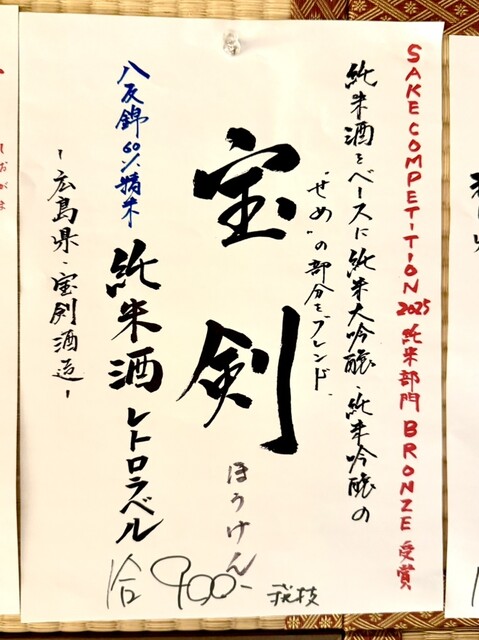 SAKE COMPETITION 2025 純米部門 BRONZE 受賞
純米酒をベースに純米大吟醸・純米吟醸の
"せめ"の部分を、ブレンド。
宝剣
ほうけん
八反錦60%精米
純米酒 レトロラベル
-広島県・宝剣酒造-
1合 900- 税抜